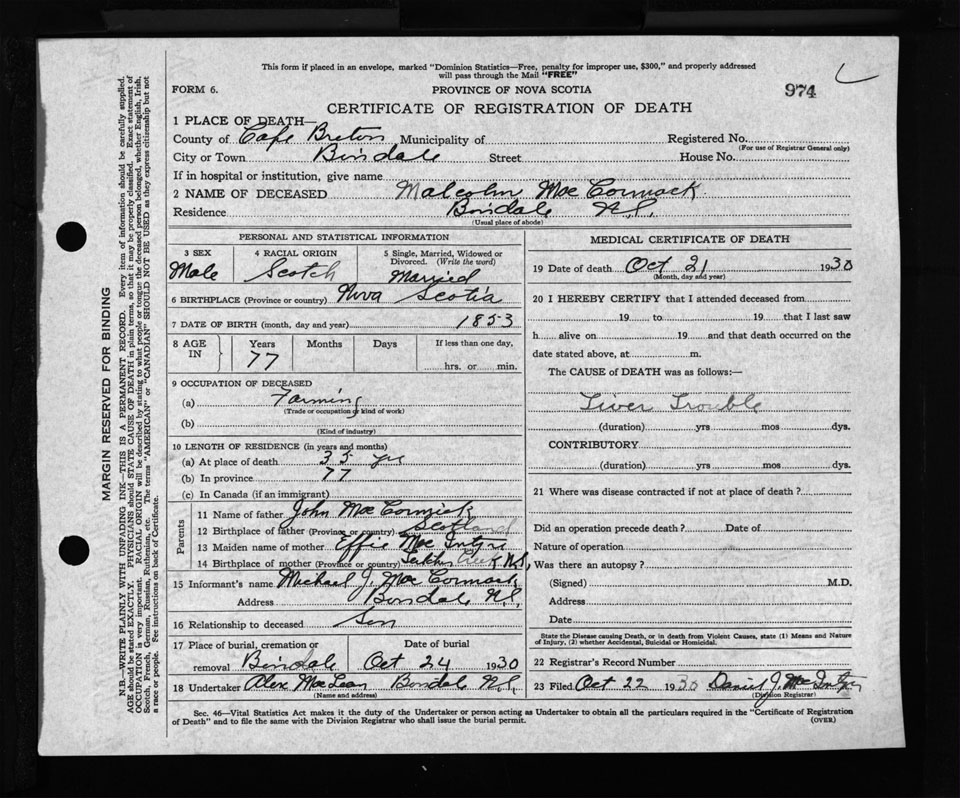 This form if placed in an envelope, marked "Dominion Statistics—Free, penalty for improper use, $300," and properly addressed
will pass through the Mail "FREE"
FORM 6. PROVINCE OF NOVA SCOTIA 974
CERTIFICATE OF REGISTRATION OF DEATH
1 PLACE OF DEATH—
County of Cape Breton Municipality of Registered No.
(For use of Registrar General only)
City or Town Boisdale Street House No.
If in hospital or institution, give name
2 NAME OF DECEASED Malcolm Mac Cormack
Residence Boisdale N.S.
(Usual place of abode)
PERSONAL AND STATISTICAL INFORMATION
3 SEX 4 RACIAL ORIGIN 5 Single, Married, Widowed or
Divorced. (Write the word)
Male Scotch Married
6 BIRTHPLACE (Province or country) Nova Scotia
7 DATE OF BIRTH (month, day and year) 1853
8 AGE IN Years Months Days If less than one day,
77 hrs. or min.
9 OCCUPATION OF DECEASED
(a) Farming
(Trade or occupation or kind of work)
(b)
(Kind of industry)
10 LENGTH OF RESIDENCE (in years and months)
(a) At place of death 35 yrs
(b) In province 77
(c) In Canada (if an immigrant)
Parents
11 Name of father John Mac Cormick
12 Birthplace of father (Province or country) Scotland
13 Maiden name of mother Effie Mac Intyre
14 Birthplace of mother (Province or country) N.S.
15 Informant's name Michael J. Mac Cormack
Address Boisdale N.S.
16 Relationship to deceased Son
17 Place of burial, cremation or Date of burial
removal Boisdale Oct 24 1930
18 Undertaker Alex MacLean Boisdale N.S.
(Name and address)
MEDICAL CERTIFICATE OF DEATH
19 Date of death Oct 21 1930
(Month, day and year)
20 I HEREBY CERTIFY that I attended deceased from
19 to 19 that I last saw
h alive on 19 and that death occurred on the
date stated above, at m.
The CAUSE of DEATH was as follows:—
Liver Trouble
(duration) yrs mos dys.
CONTRIBUTORY
(duration) yrs mos dys.
21 Where was disease contracted if not at place of death?
Did an operation precede death? Date of
Nature of operation
Was there an autopsy?
(Signed) M.D.
Address
Date
State the Disease causing Death, or in death from Violent Causes, state (1) Means and Nature
of Injury, (2) whether Accidental, Suicidal or Homicidal.
22 Registrar's Record Number
23 Filed Oct 22 1930 Daniel J. Mac Intyre
(Division Registrar)
Sec. 46—Vital Statistics Act makes it the duty of the Undertaker or person acting as Undertaker to obtain all the particulars required in the "Certificate of Registration
of Death" and to file the same with the Division Registrar who shall issue the burial permit. (OVER)
MARGIN RESERVED FOR BINDING
N.B.—WRITE PLAINLY WITH UNFADING INK—THIS IS A PERMANENT RECORD. Every item of information should be carefully supplied.
AGE should be stated EXACTLY. PHYSICIANS should STATE CAUSE OF DEATH in plain terms, so that it may be properly classified. Exact statement of
OCCUPATION is very important. RACIAL ORIGIN will be described by stating to what people or tongue the deceased person belonged, whether English, Irish,
Scotch, French, German, Russian, Ruthenian, etc. The terms "AMERICAN" or "CANADIAN" SHOULD NOT BE USED as they express citizenship but not
a race or people. See instructions on back of Certificate.